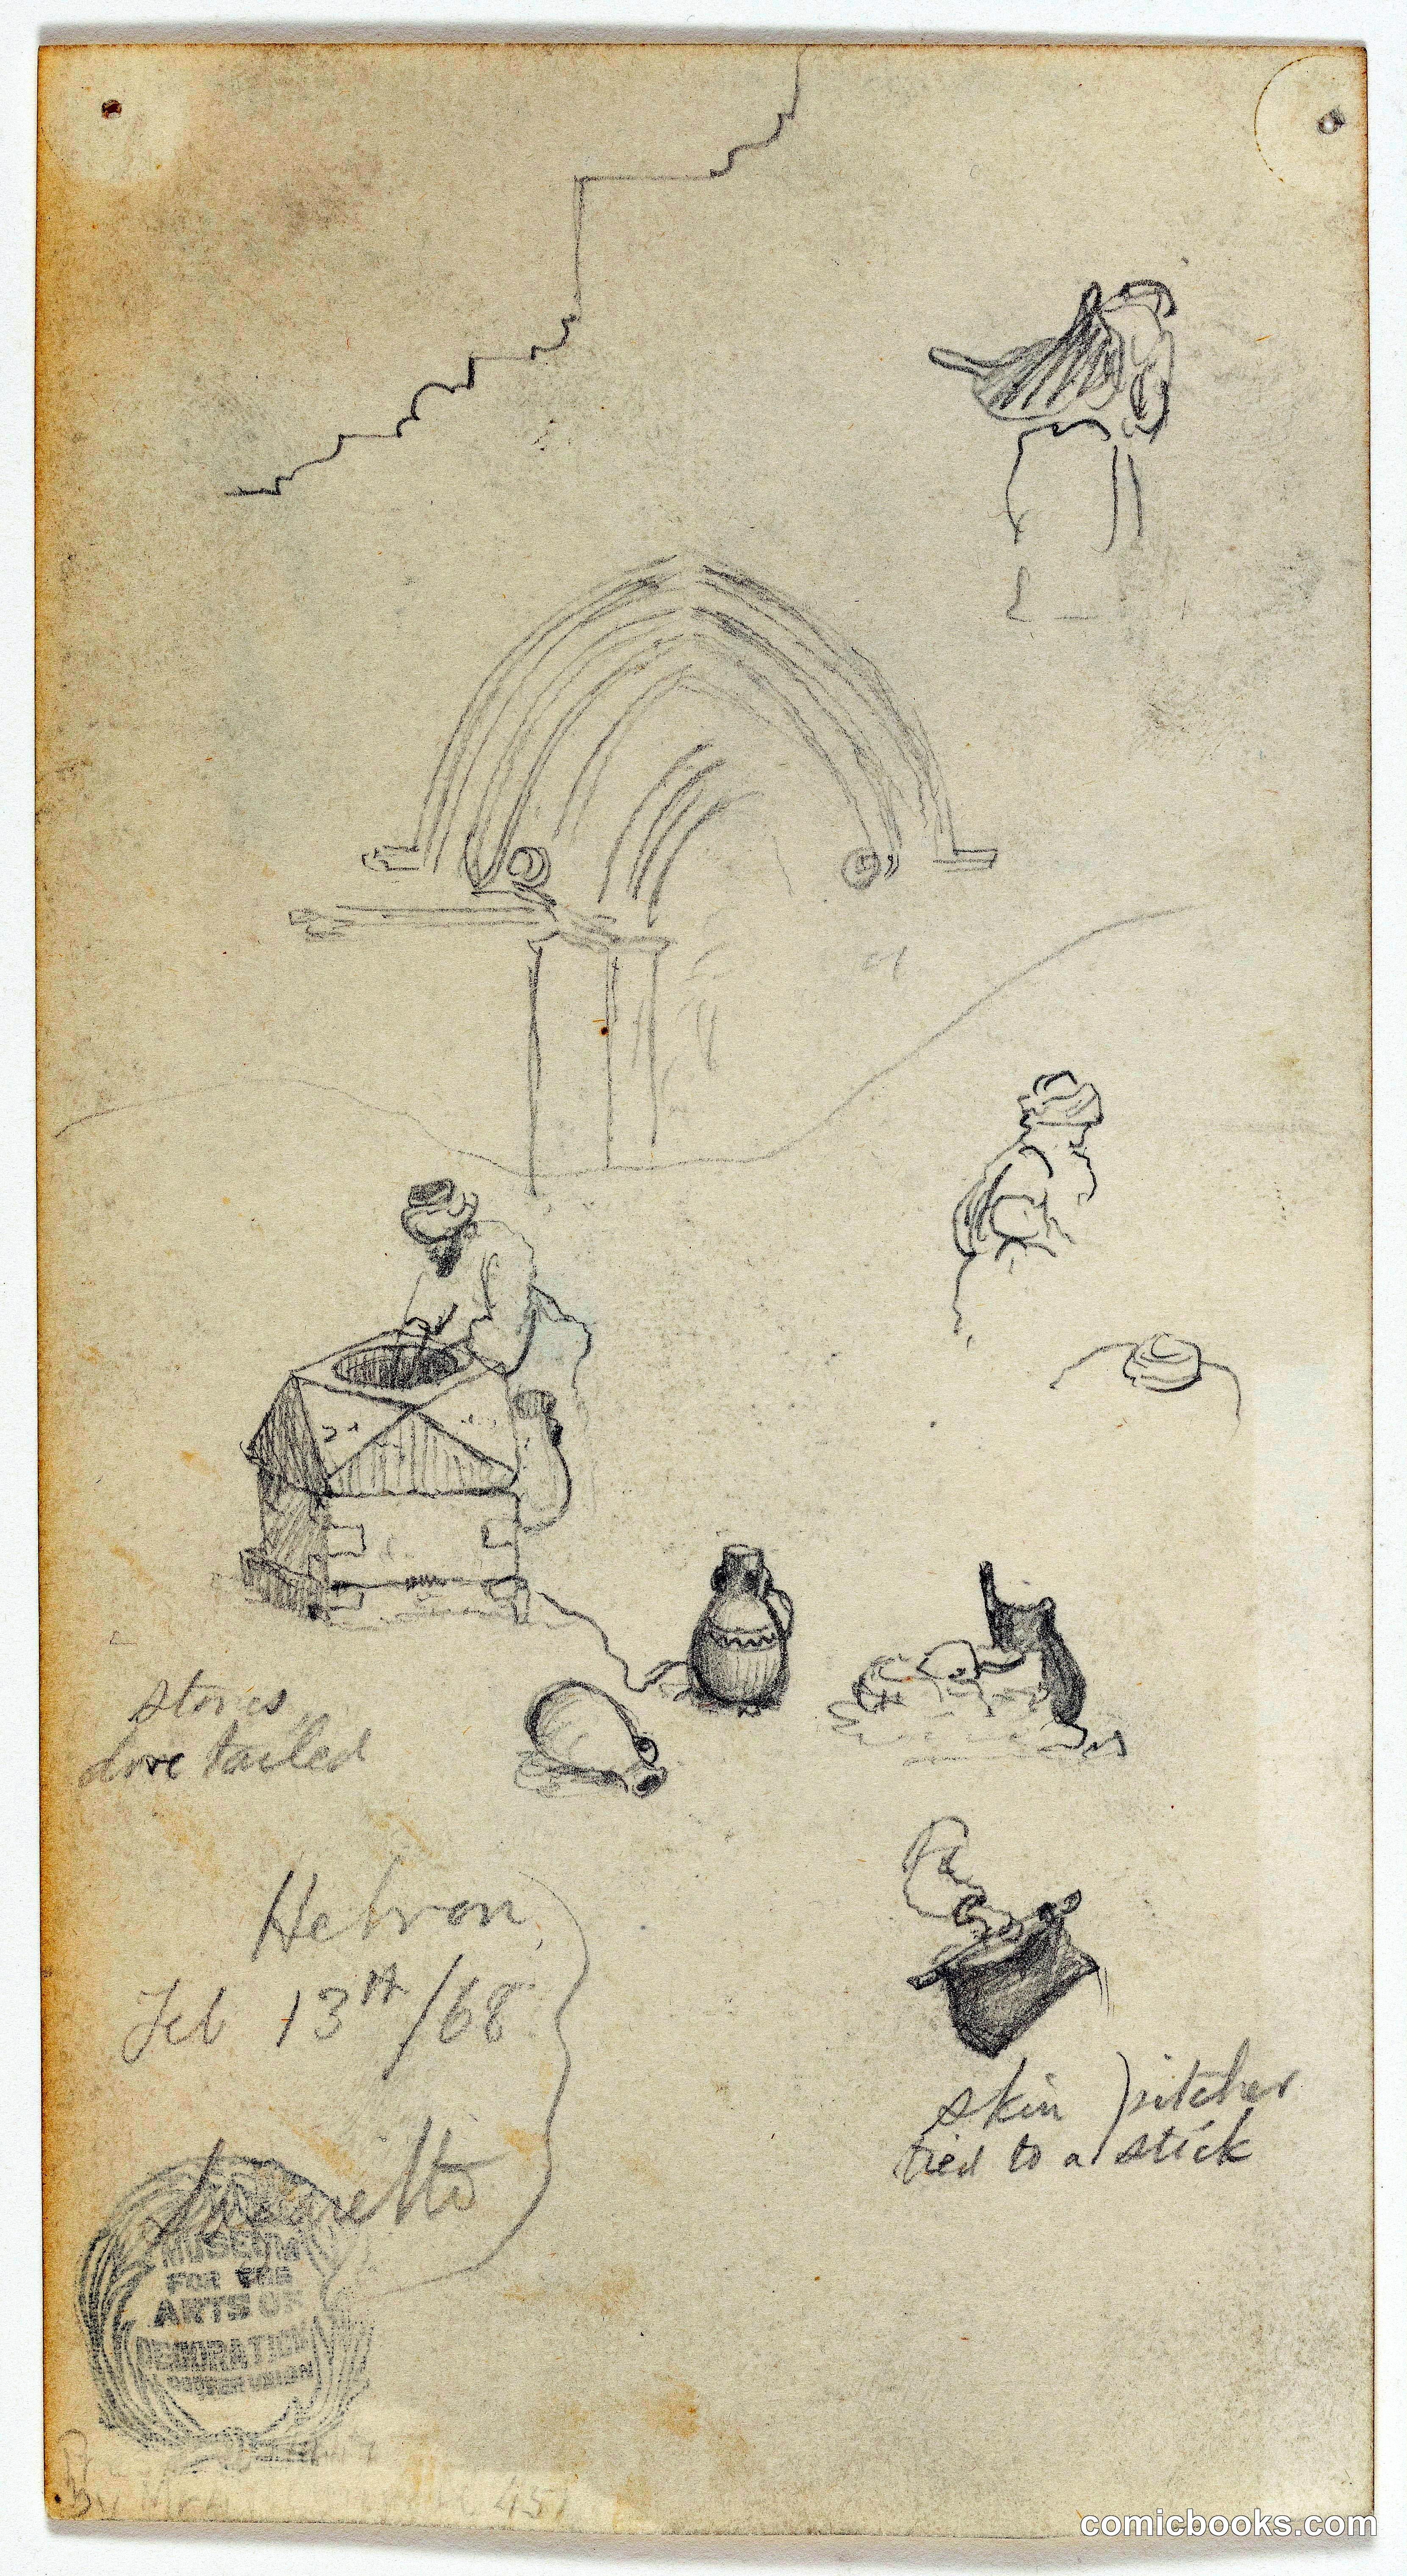 stones
dove tailed
Hebron
Feb 13th/68
Lazaretto
skin pitcher
tied to a stick
MUSEUM
FOR THE
ARTS OF
DECORATION
COOPER UNION
comicbooks.com